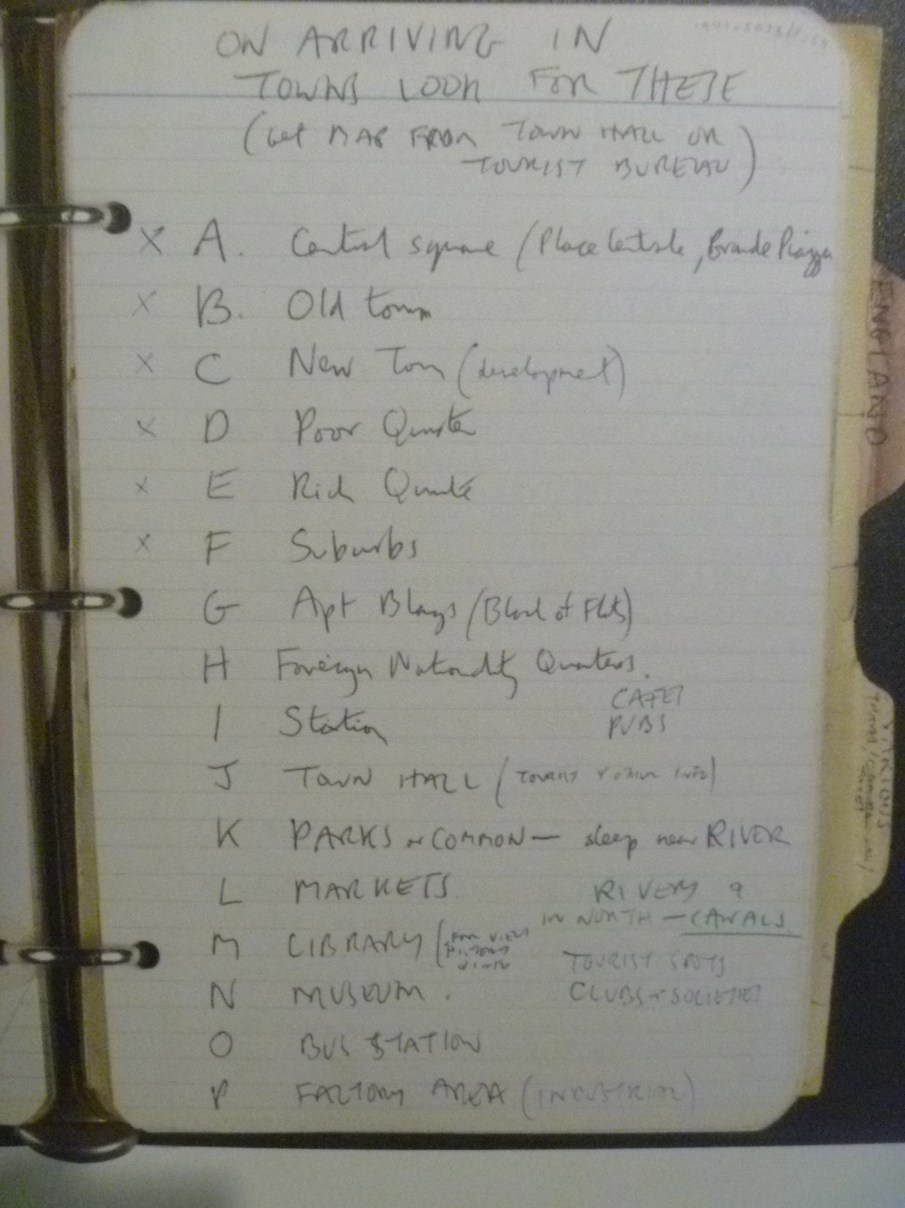 ON ARRIVING IN
TOWNS LOOK FOR THESE
(Get MAP FROM TOWN HALL OR
TOURIST BUREAU)
X A. Central square (Place Centrale, Grande Piazza
X B. Old town
X C New Town (development)
X D Poor Quarter
X E Rich Quarter
X F Suburbs
G Apt Bldgs (Block of Flats)
H Foreign Nationality Quarters.
CAFES
I Station PUBS
J TOWN HALL (TOURIST + INFO)
K PARKS or COMMON — sleep near RIVER
L MARKETS RIVERS
IN NORTH — CANALS
M LIBRARY (
TOURIST SPOTS
N MUSEUM. CLUBS + SOCIETIES
O BUS STATION
P FACTORY AREA (INDUSTRIAL)
ENGLAND
VARIOUS